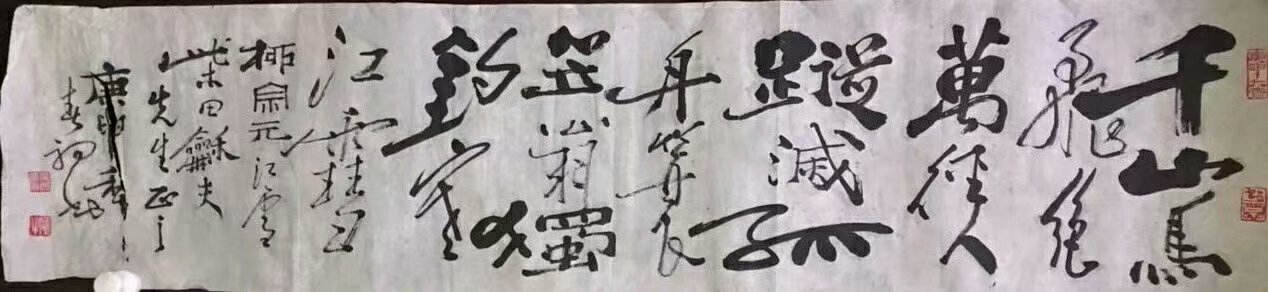 千山鳥
飛絕
萬徑人
蹤滅孤
舟簑
笠翁獨
釣寒
江雪
柳宗元江雪
柴田龢夫
先生正之
庚申